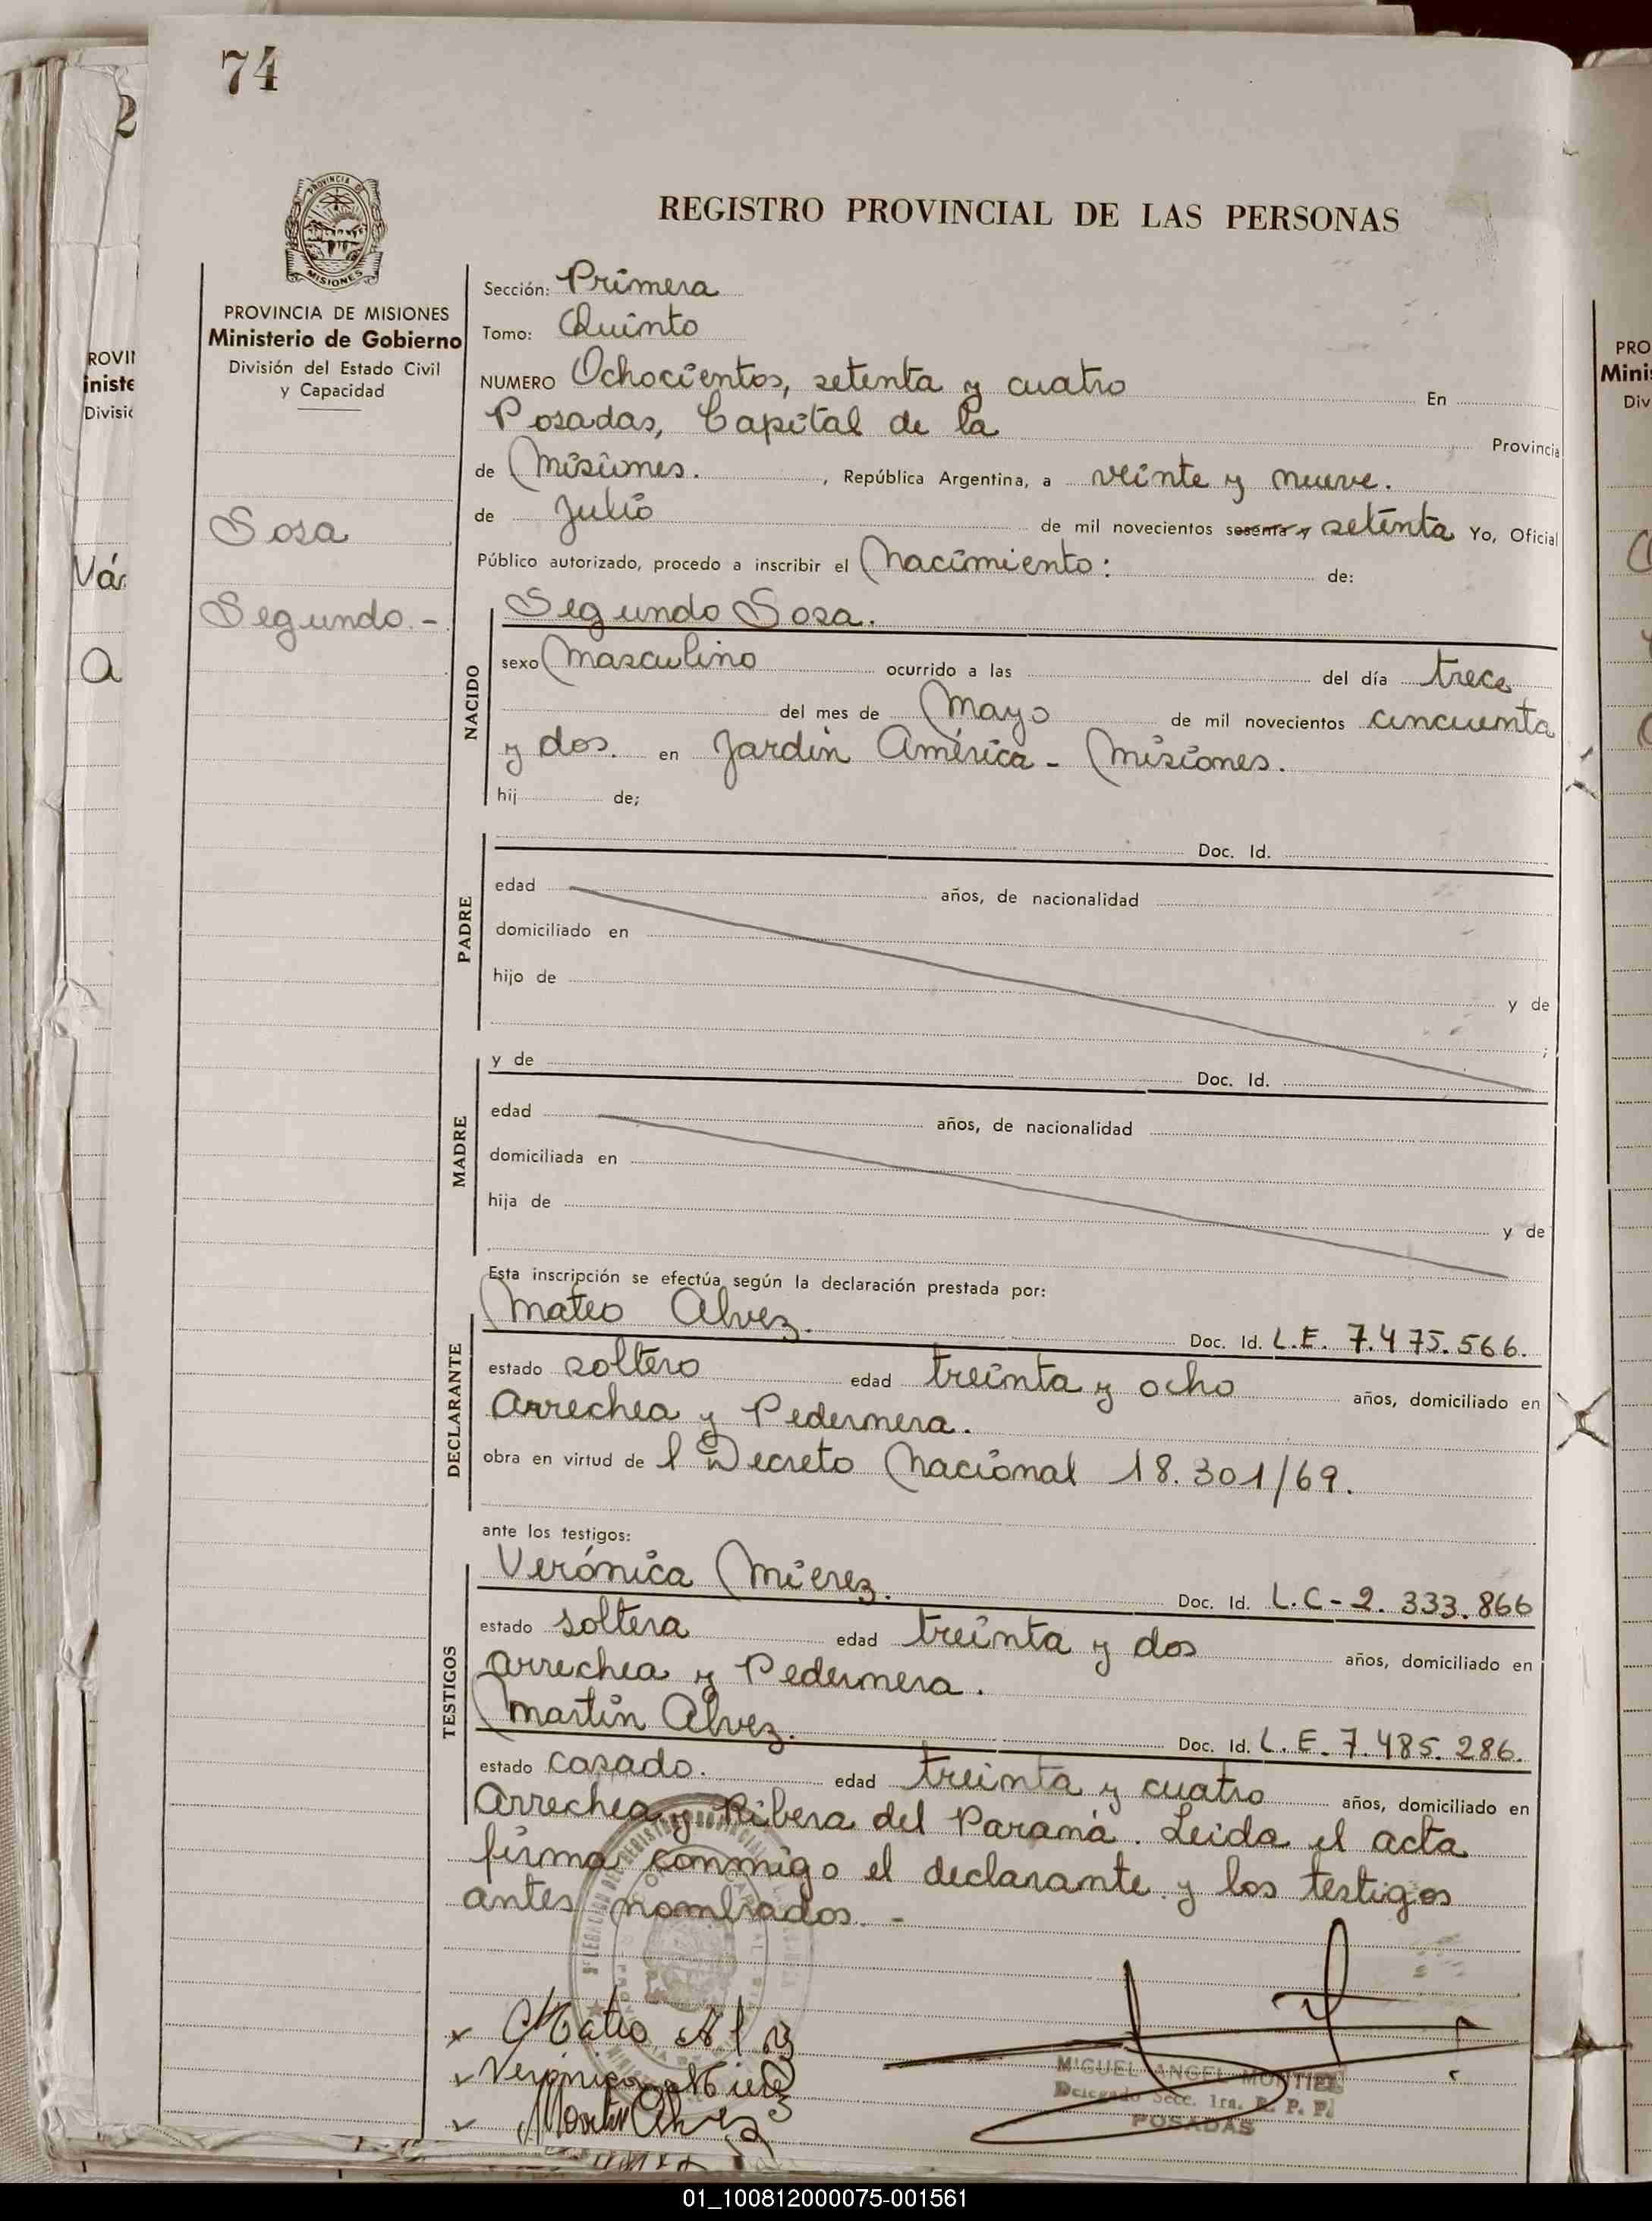 74
REGISTRO PROVINCIAL DE LAS PERSONAS
PROVINCIA DE
MISIONES
PROVINCIA DE MISIONES
Ministerio de Gobierno
División del Estado Civil
y Capacidad
Sosa
Segundo.-
Sección: Primera
Tomo: Quinto
NUMERO Ochocientos, setenta y cuatro En
Posadas, Capital de la Provincia
de Misiones. , República Argentina, a veinte y nueve.
de Julio de mil novecientos sesenta y setenta Yo, Oficial
Público autorizado, procedo a inscribir el Nacimiento: de:
NACIDO
Segundo Sosa.
sexo Masculino ocurrido a las del día trece
del mes de Mayo de mil novecientos cincuenta
y dos. en Jardín América - Misiones.
hij de;
PADRE
Doc. Id.
edad años, de nacionalidad
domiciliado en
hijo de y de
;
MADRE
y de Doc. Id.
edad años, de nacionalidad
domiciliada en
hija de y de
Esta inscripción se efectúa según la declaración prestada por:
DECLARANTE
Mateo Alvez. Doc. Id. L.E. 7.475.566.
estado soltero edad treinta y ocho años, domiciliado en
Arrechea y Pedernera.
obra en virtud de l Decreto Nacional 18.301/69.
ante los testigos:
TESTIGOS
Verónica Mierez. Doc. Id. L.C - 2. 333.866
estado soltera edad treinta y dos años, domiciliado en
Arrechea y Pedernera.
Martín Alvez. Doc. Id. L.E. 7.485.286.
estado casado. edad treinta y cuatro años, domiciliado en
Arrechea y Ribera del Paraná. Leida el acta
firma conmigo el declarante y los testigos
antes nombrados. -
Mateo Alvez
Verónica Mierez
Martin Alvez
MIGUEL ANGEL MONTIEL
Delegado Secc. 1ra. R. P. P.
POSADAS
01_100812000075-001561